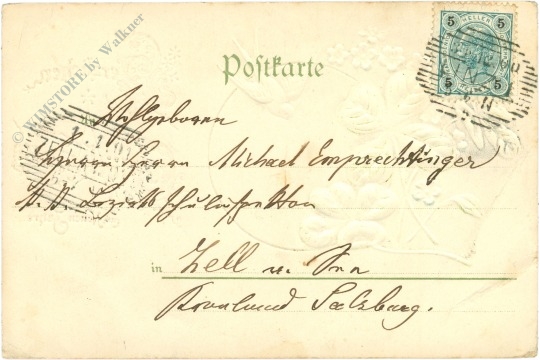 © WIMSTORE by Walkner
5 HELLER 5
5 5
Postkarte
Wohlgeboren
Herrn Herrn Michael Emprechtinger
k. k. Bezirksschulinspektor
in Zell a. See
Kronland Salzburg.